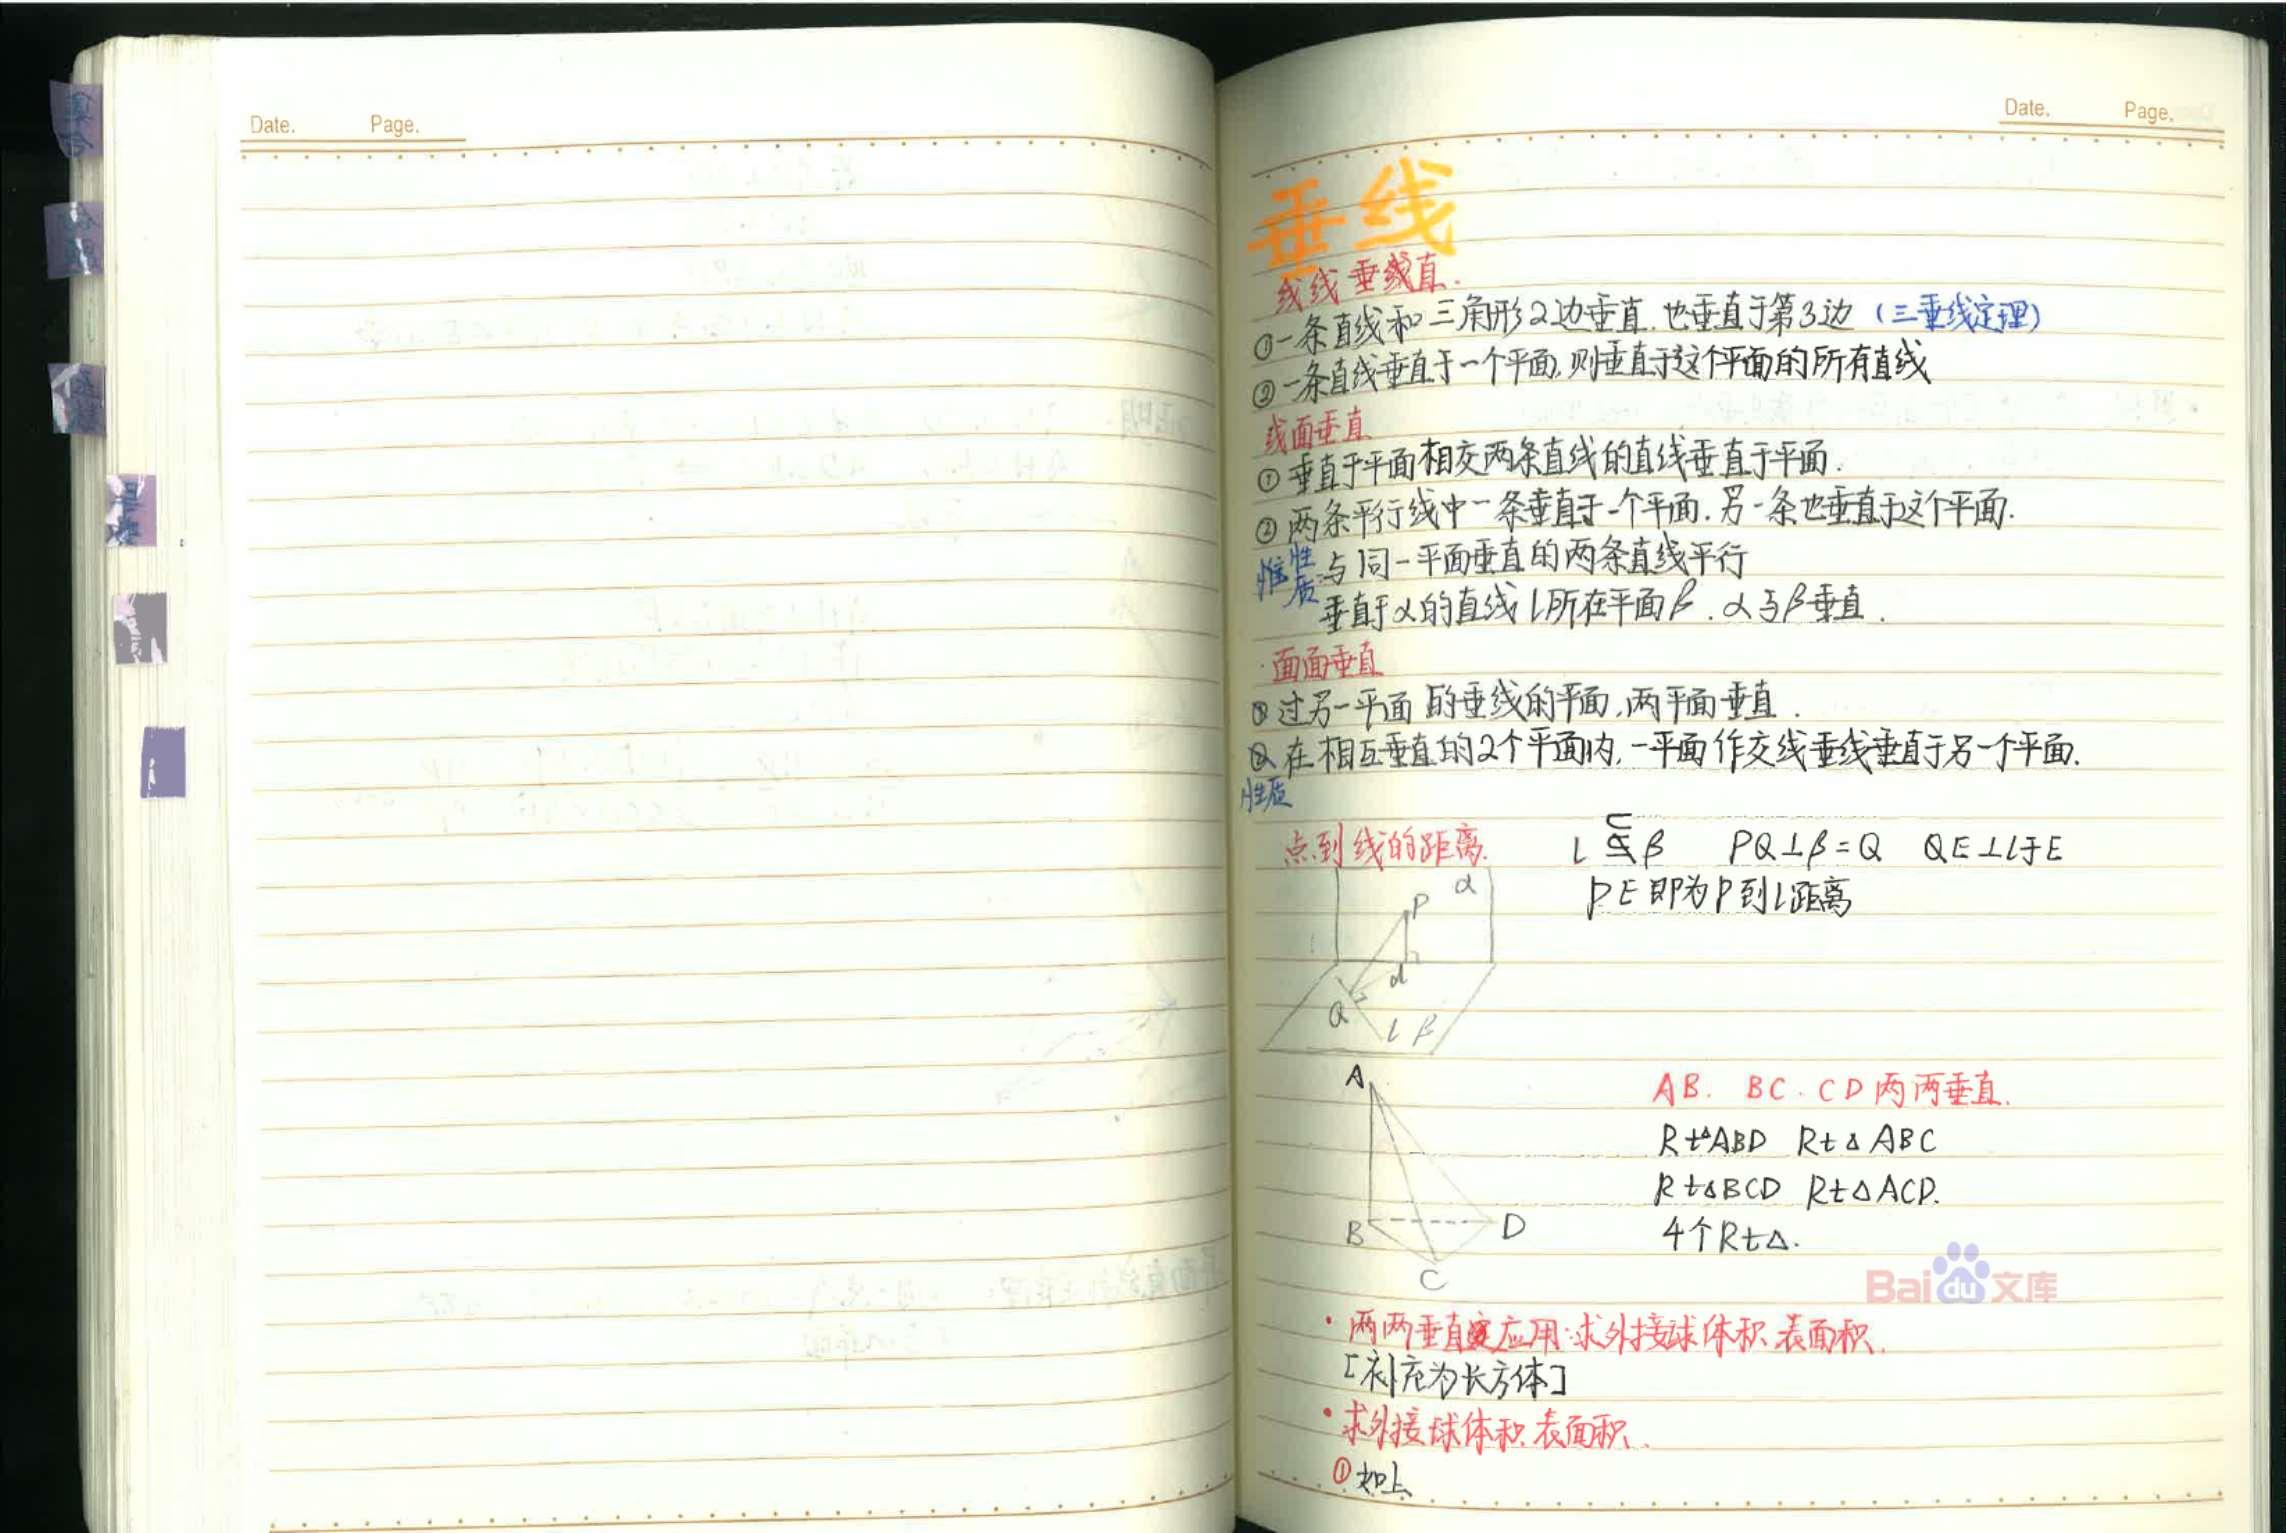 Date. Page.
Date. Page.
垂线
线线垂线直.
①一条直线和三角形2边垂直.也垂直于第3边(三垂线定理)
②一条直线垂直于一个平面,则垂直于这个平面的所有直线
线面垂直
①垂直于平面相交两条直线的直线垂直于平面.
②两条平行线中一条垂直于一个平面.另一条也垂直于这个平面.
性质:与同一平面垂直的两条直线平行
垂直于α的直线l所在平面β.α与β垂直.
·面面垂直
①过另一平面的垂线的平面,两平面垂直.
②在相互垂直的2个平面内,一平面作交线垂线垂直于另一个平面.
性质
点到线的距离. l⊆β PQ⊥β=Q QE⊥l于E
PE即为P到l距离
α
P
d
Q
l β
A
AB. BC.CD两两垂直.
Rt△ABD Rt△ABC
Rt△BCD Rt△ACD.
B D
4个Rt△.
C
Baidu文库
·两两垂直应用:求外接球体积.表面积.
[补充为长方体]
·求外接球体积.表面积.
①如上